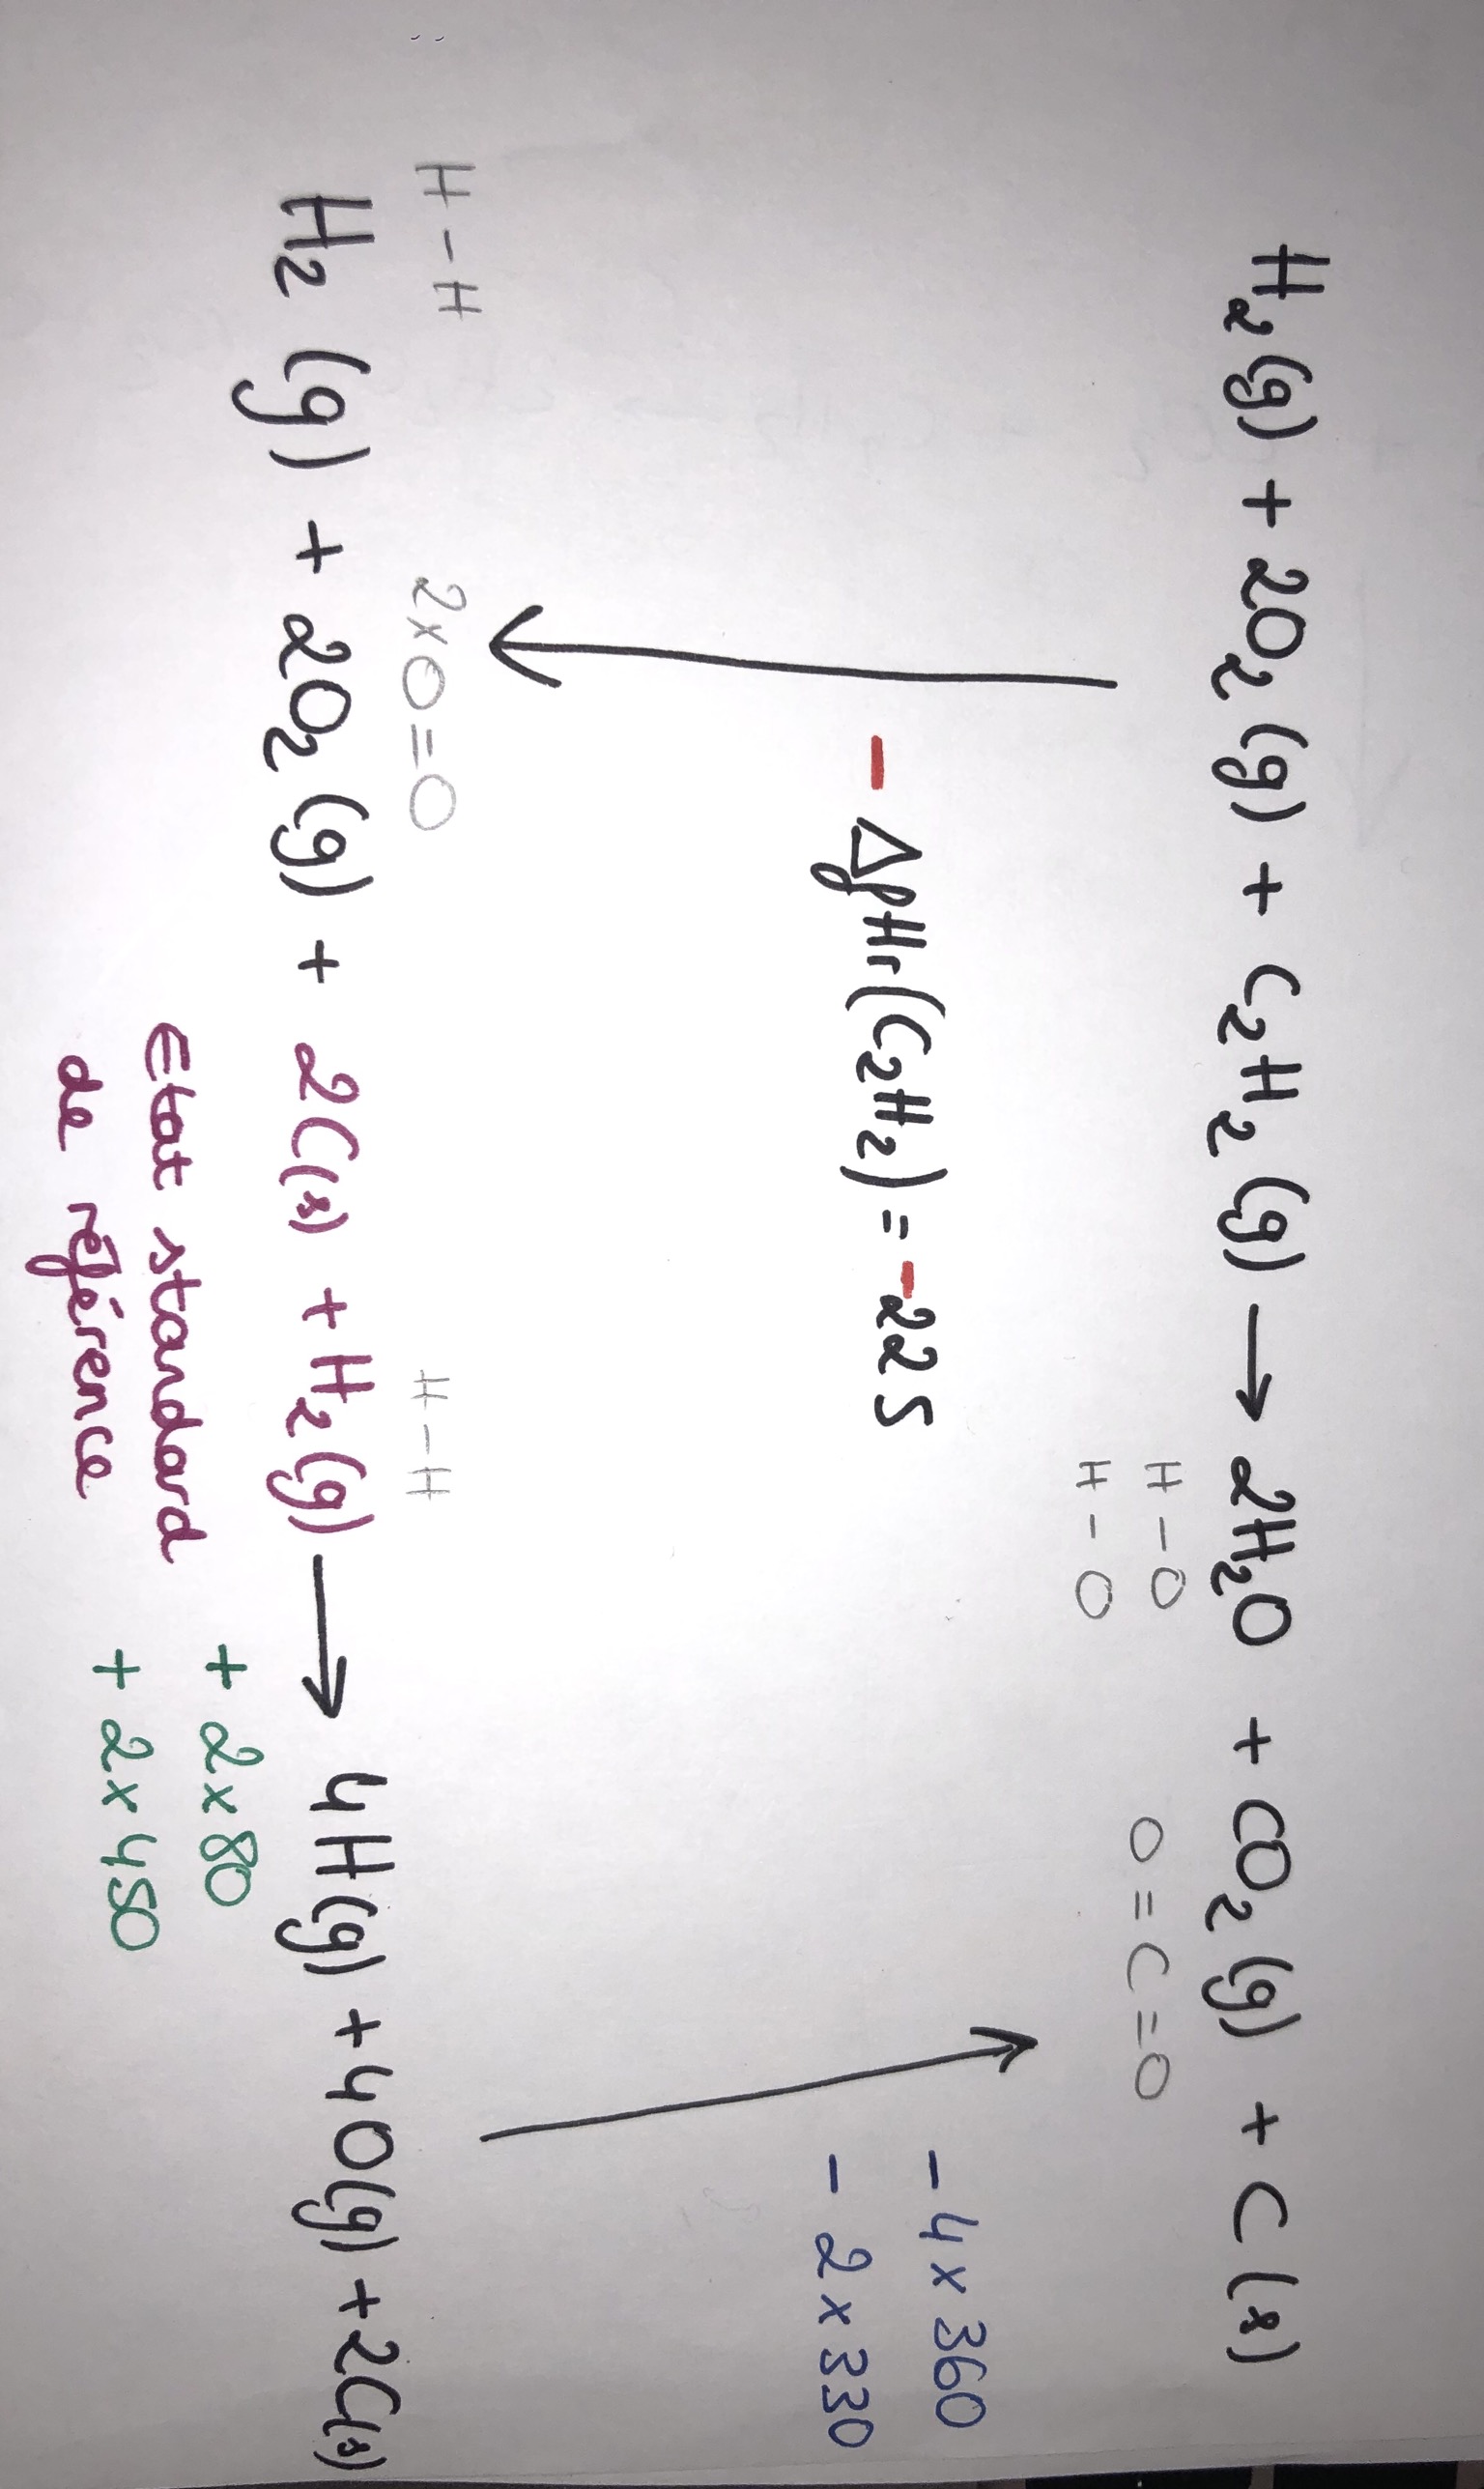 H₂(g) + 2O₂(g) + C₂H₂(g) → 2H₂O + CO₂(g) + C(s)
H - O
H - O
O = C = O
- ΔfHr(C₂H₂) = -225
- 4 x 360
- 2 x 330
H - H
2 x O = O
H - H
H₂(g) + 2O₂(g) + 2C(s) + H₂(g) → 4H(g) + 4O(g) + 2C(s)
Etat standard
de référence
+ 2 x 80
+ 2 x 450